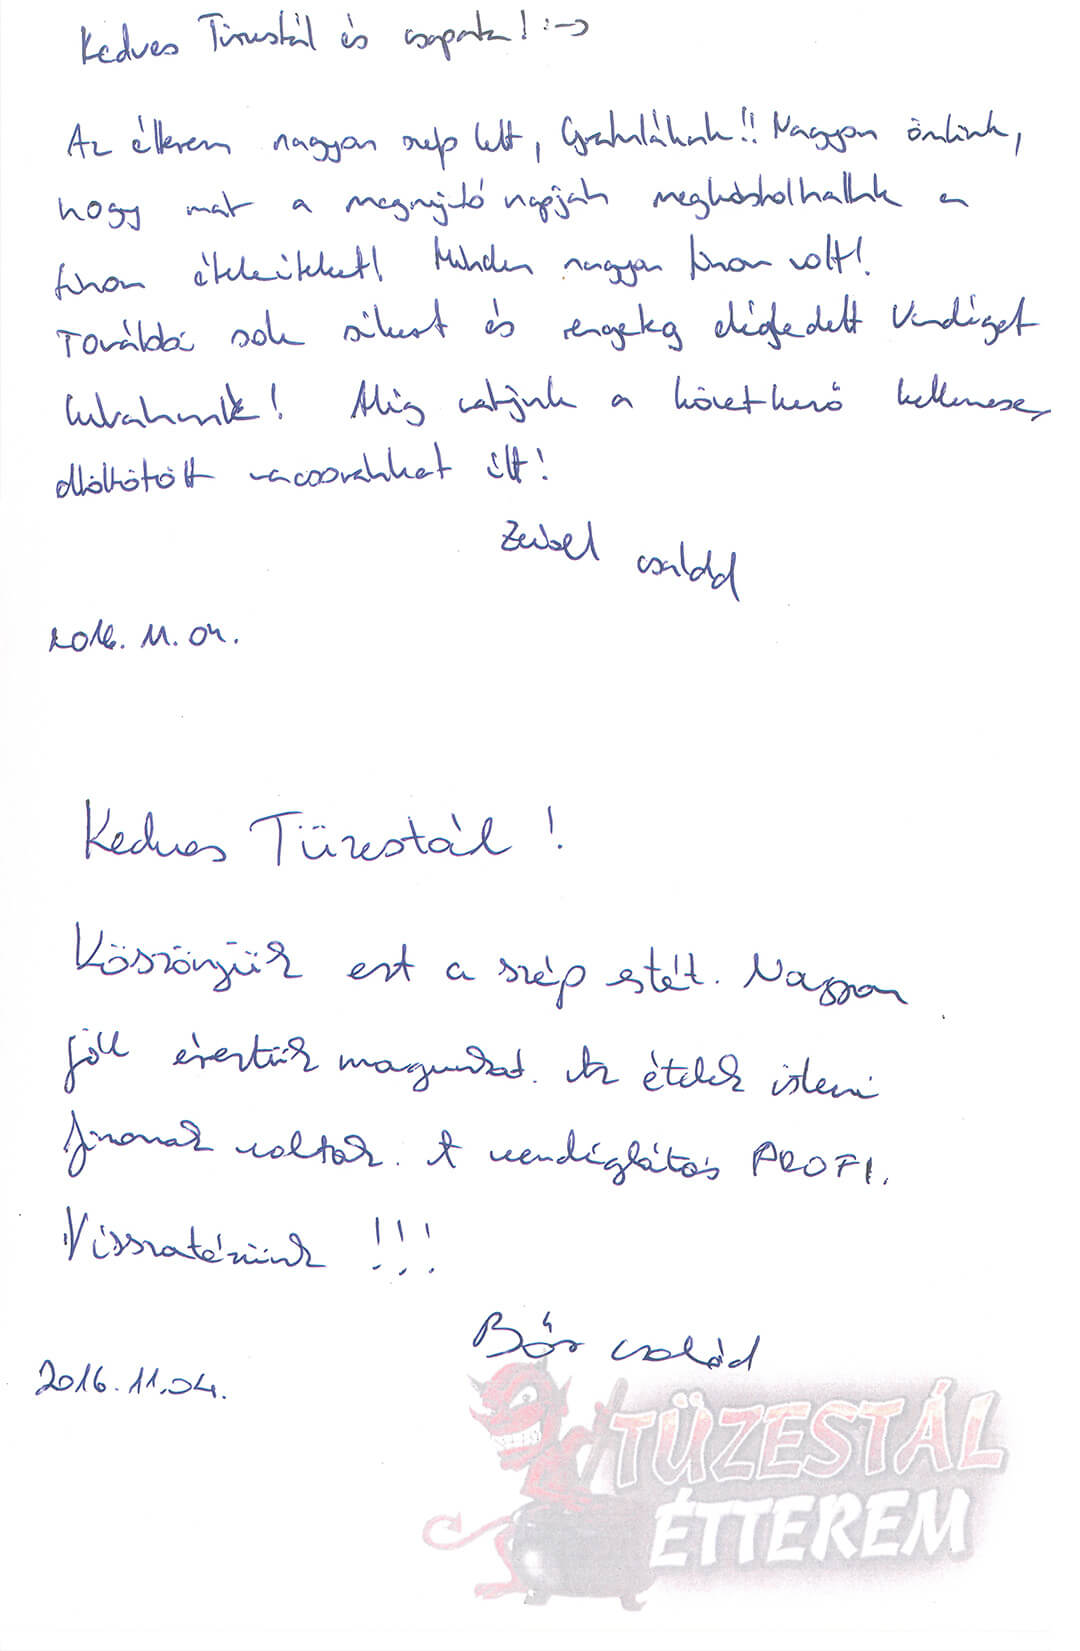 Kedves Tüzestál és csapata! :-)
Az étterem nagyon szép lett, Gratulálunk!! Nagyon örülünk,
hogy már a megnyitó napján megkóstolhattuk a
finom ételeitekket! Minden nagyon finom volt!
További sok sikert és rengeteg elégedett Vendéget
kívánunk! Alig várjuk a következő kellemesen
eltöltött vacsoránkat itt!
család
2016. 11. 04.
Kedves Tüzestál!
Köszönjük ezt a szép estét. Nagyon
jóll éreztük magunkat. Az ételek isteni
finomak voltak. A vendéglátás PROFI.
Visszatérünk !!!
Bős család
2016.11.04.
TÜZESTÁL
ÉTTEREM